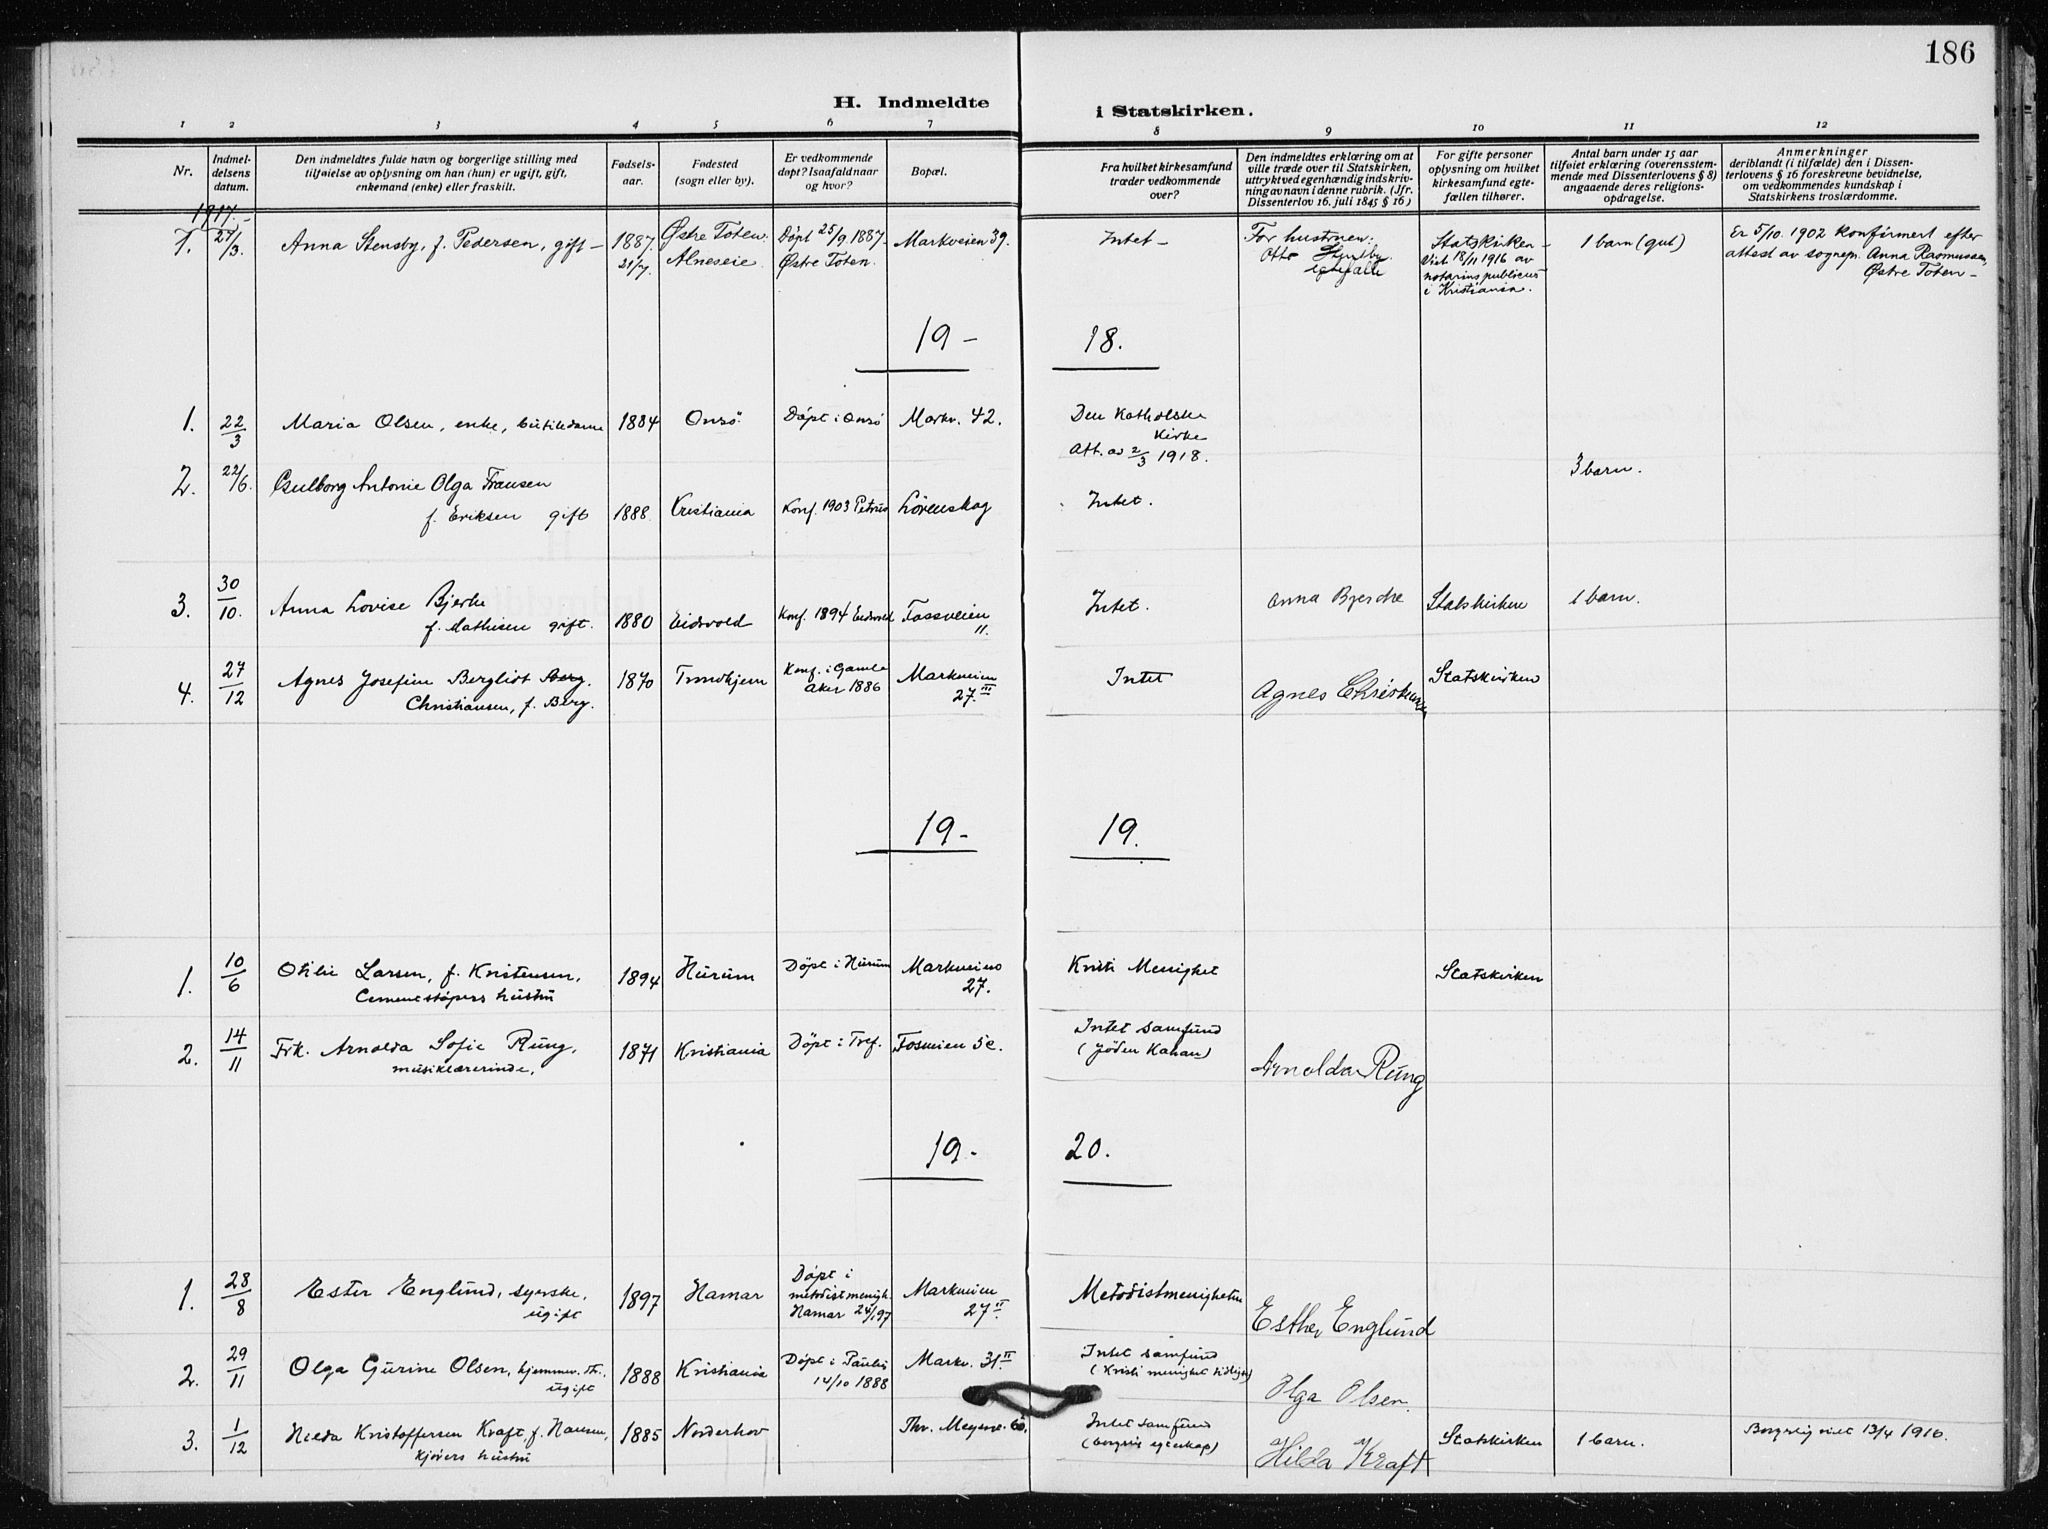 186
H. Indmeldte i Statskirken.
1 2 3 4 5 6 7 8 9 10 11 12
Nr.
Indmel-
delsens
datum.
Den indmeldtes fulde navn og borgerlige stilling med
tilføielse av oplysning om han (hun) er ugift, gift,
enkemand (enke) eller fraskilt.
Fødsels-
aar.
Fødested
(sogn eller by).
Er vedkommende
døpt? Isaafald naar
og hvor?
Bopæl.
Fra hvilket kirkesamfund
træder vedkommende
over?
Den indmeldtes erklæring om at
ville træde over til Statskirken,
uttrykt ved egenhændig indskriv-
ning av navn i denne rubrik. (Jfr.
Dissenterlov 16. juli 1845 § 16)
For gifte personer
oplysning om hvilket
kirkesamfund egte-
fællen tilhører.
Antal barn under 15 aar
tilføiet erklæring (overensstem-
mende med Dissenterlovens § 8)
angaaende deres religions-
opdragelse.
Anmerkninger
deriblandt (i tilfælde) den i Dissen-
terlovens § 16 foreskrevne bevidnelse,
om vedkommendes kundskap i
Statskirkens troslærdomme.
1917.-
1.
27/3.
Anna Stensby, f. Pedersen, gift -
1887.
21/7.
Østre Toten.
Alneseie
Døpt 25/9. 1887.
Østre Toten.
Markveien 39.
Intet -
For hustruen:
Otto Stensby.
egtefælle
Statskirken -
Viet 18/11 1916 av
notarius publicus
i Kristiania.
1 barn (gut)
Er 5/10. 1902 konfirmert efter
attest av sognepr. Anna Rasmussen,
Østre Toten -
19 - 18.
1.
22/3
Maria Olsen, enke, butikdame
1884
Onsö
Döpt i Onsö
Markv. 42.
Den Katholske
Kirke
Att. av 2/3 1918.
2.
22/6.
Olga Fransen
f. Eriksen gift
1888.
Kristiania
Konf. 1903 Petrus
Lörenskog
Intet.
3 barn.
3.
30/10.
Anna Lovise Bjerke
f. Mathisen gift.
1880
Eidsvold
Konf. 1894 Eidsvold
Fossveien
11.
Intet.
Anna Bjerche
Statskirken
1 barn.
4.
27/12
Agnes Josefine Bergliot Berg.
Christiansen, f. Berg.
1870
Trondhjem
Konf. i Gamle
Aker 1886
Markveien
27.III
Intet
Agnes Christiansen
Statskirken
19 - 19.
1.
10/6
Otilie Larsen, f. Kristensen,
Cementstöpers hustru
1894
Hurum
Döpt i Hurum
Markveien
27.
Kristi Menighet
Statskirken
2.
14/11
Frk. Arnolda Sofie Rung,
musiklærerinde.
1871
Kristiania
Döpt i Tref.
Fosveien 5c.
Intet samfund
(Jöden Kahan)
Arnolda Rung
19 - 20.
1.
28/8
Ester Englund, syerske,
ugift
1897
Hamar
Döpt i
metodistmenigh.
Hamar 24/1 97
Markveien
27II.
Metodistmenigheten
Esther Englund
2.
29/11
Olga Gurine Olsen, hjemmev. dt.,
ugift
1888
Kristiania
Döpt i Paulus
14/10 1888
Markv. 31.II
Intet samfund
(Kristi menighet tidligere)
Olga Olsen.
3.
1/12
Hilda Kristoffersen Kraft, f. Hansen,
Kjörers hustru
1885
Norderhov
Thv. Meyersg. 60.
Intet samfund
(borgerlig egteskap)
Hilda Kraft
Statskirken
1 barn.
Borgerlig viet 13/4 1916.